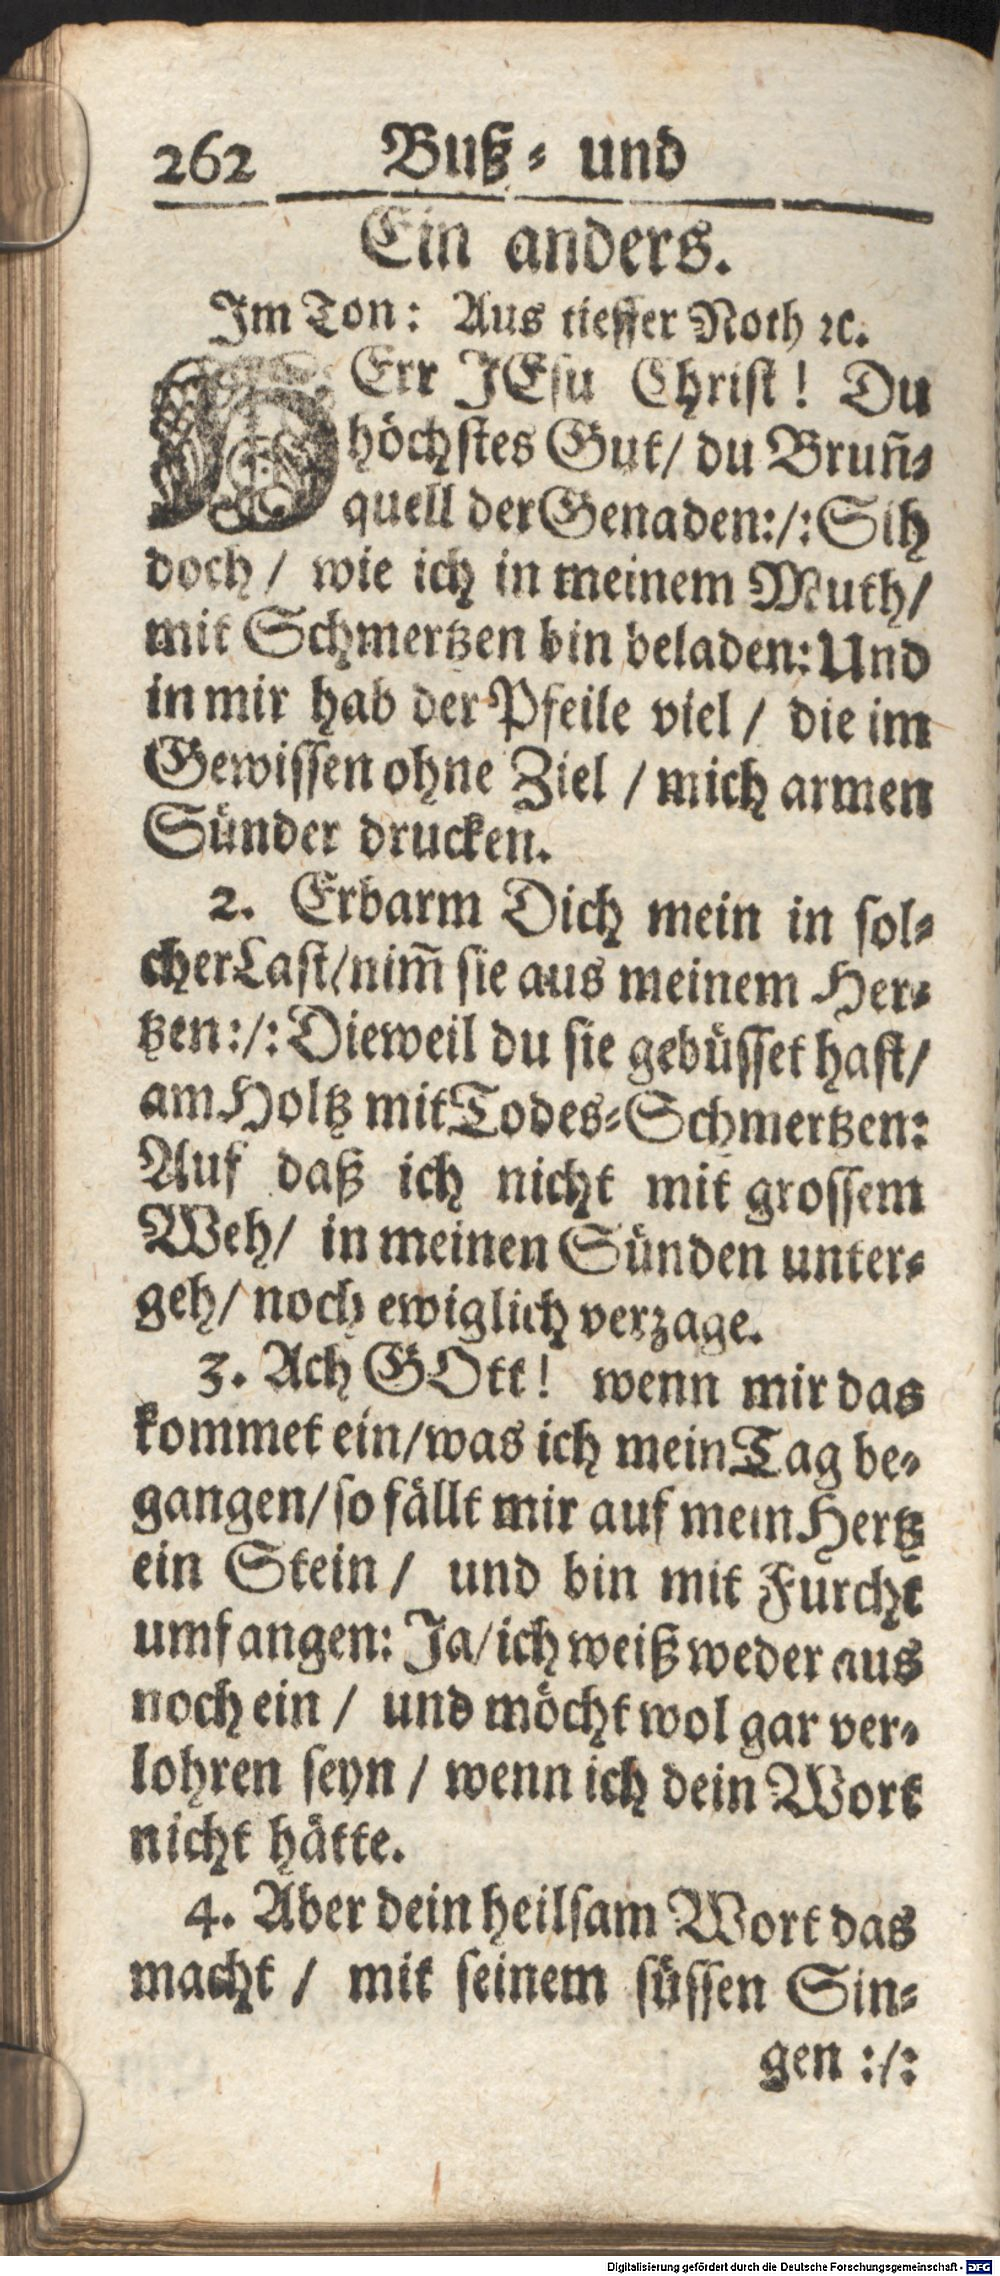 262 Buß- und
Ein anders.
Im Ton: Aus tieffer Noth ꝛc.
HErr JEsu Christ! Du
höchstes Gut/ du Brun̄-
quell der Genaden:/: Sih
doch / wie ich in meinem Muth/
mit Schmertzen bin beladen: Und
in mir hab der Pfeile viel / die im
Gewissen ohne Ziel / mich armen
Sünder drucken.
2. Erbarm Dich mein in sol-
cher Last/nim̄ sie aus meinem Her-
tzen:/: Dieweil du sie gebüsset hast/
am Holtz mit Todes-Schmertzen:
Auf daß ich nicht mit grossem
Weh/ in meinen Sünden unter-
geh/ noch ewiglich verzage.
3. Ach GOtt! wenn mir das
kommet ein/was ich mein Tag be-
gangen/so fällt mir auf mein Hertz
ein Stein / und bin mit Furcht
umfangen: Ja/ich weiß weder aus
noch ein / und möcht wol gar ver-
lohren seyn / wenn ich dein Wort
nicht hätte.
4. Aber dein heilsam Wort das
macht / mit seinem süssen Sin-
gen :/:
Digitalisierung gefördert durch die Deutsche Forschungsgemeinschaft - DFG